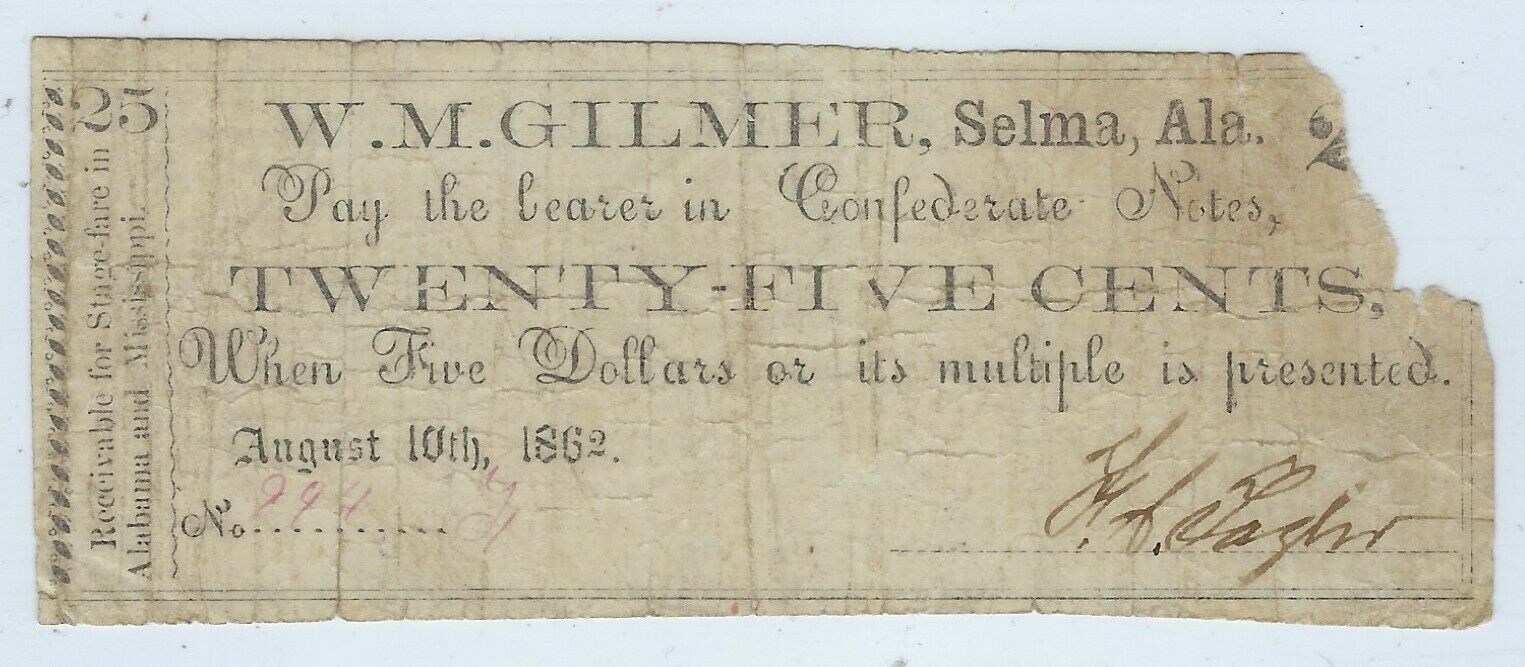 25
Receivable for Stage-fare in
Alabama and Mississippi.
W. M. GILMER, Selma, Ala. 2
Pay the bearer in Confederate Notes,
TWENTY-FIVE CENTS,
When Five Dollars or its multiple is presented.
August 10th, 1862.
No. 294